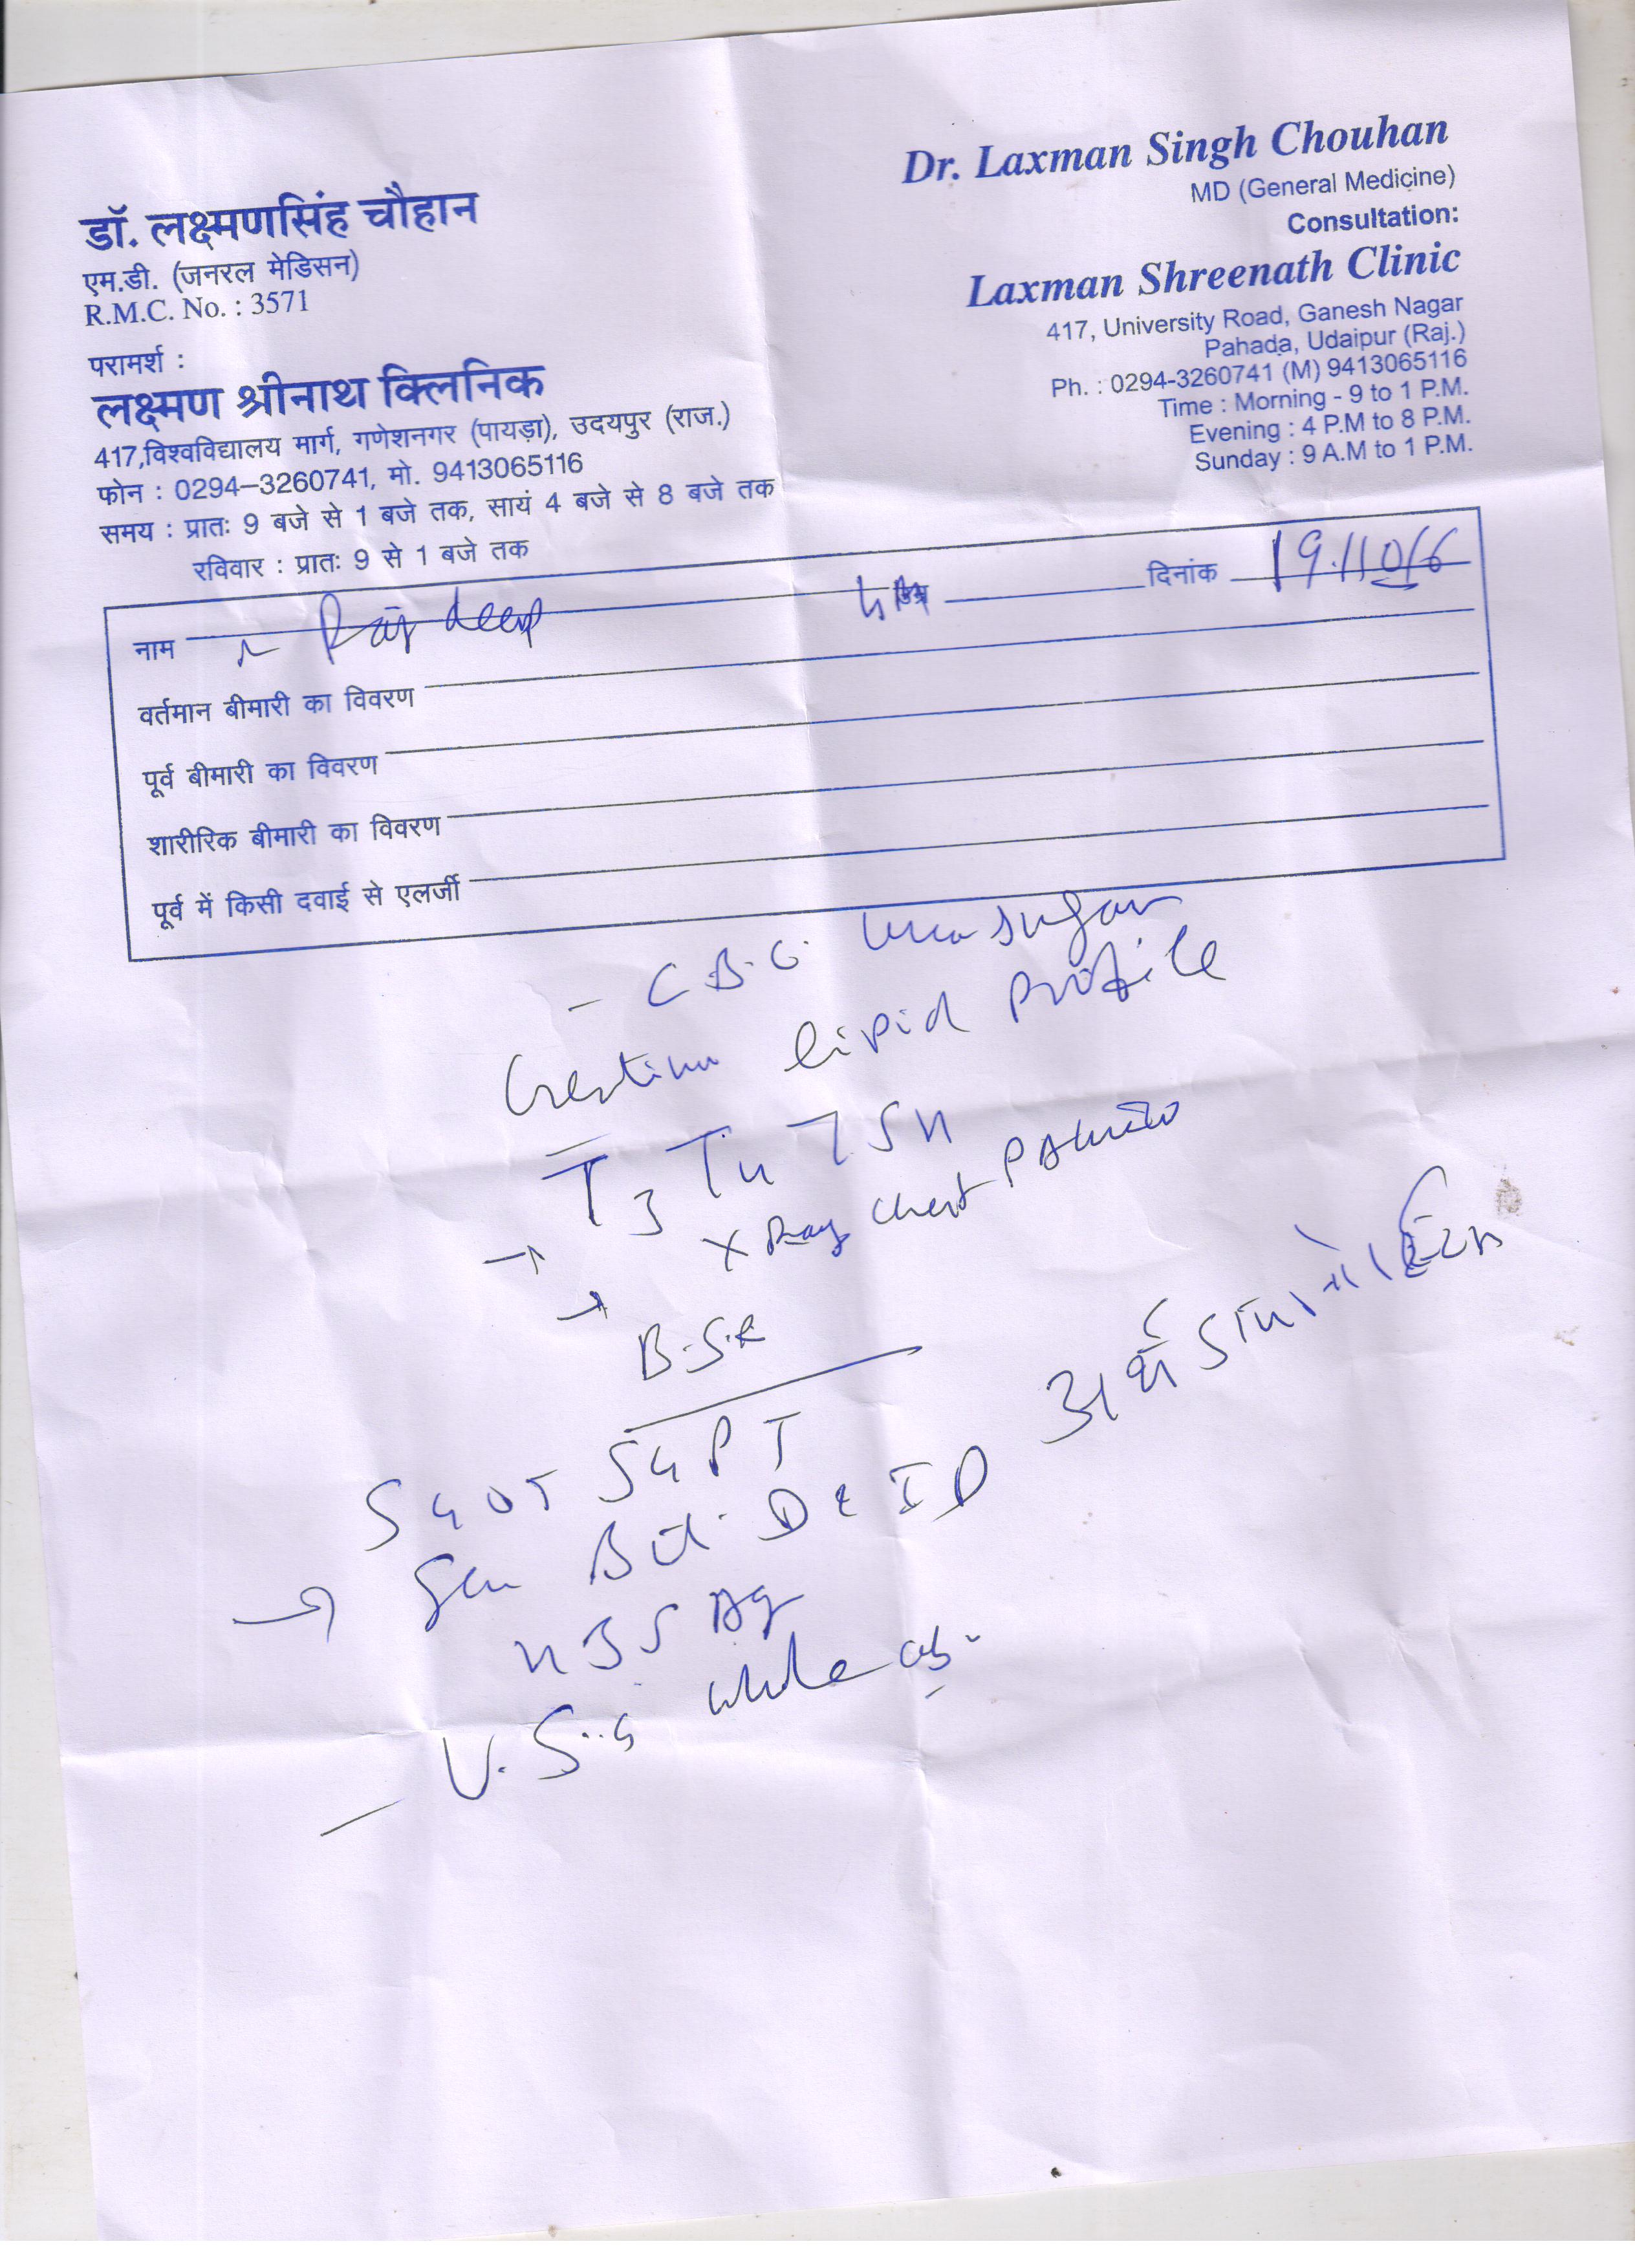 डॉ. लक्ष्मणसिंह चौहान
एम.डी. (जनरल मेडिसन)
R.M.C. No. : 3571
परामर्श :
लक्ष्मण श्रीनाथ क्लिनिक
417,विश्वविद्यालय मार्ग, गणेशनगर (पायड़ा), उदयपुर (राज.)
फोन : 0294–3260741, मो. 9413065116
समय : प्रातः 9 बजे से 1 बजे तक, सायं 4 बजे से 8 बजे तक
रविवार : प्रातः 9 से 1 बजे तक
Dr. Laxman Singh Chouhan
MD (General Medicine)
Consultation:
Laxman Shreenath Clinic
417, University Road, Ganesh Nagar
Pahada, Udaipur (Raj.)
Ph. : 0294-3260741 (M) 9413065116
Time : Morning - 9 to 1 P.M.
Evening : 4 P.M to 8 P.M.
Sunday : 9 A.M to 1 P.M.
नाम Raj deep उम्र दिनांक
वर्तमान बीमारी का विवरण
पूर्व बीमारी का विवरण
शारीरिक बीमारी का विवरण
पूर्व में किसी दवाई से एलर्जी
- C B.C. sugar
lipid Profile
T3 T4 TSH
X Ray Chest PA
B.S.R
SGOT SGPT
Bil. D & ID
HBSAg
U.S.G whole ab.